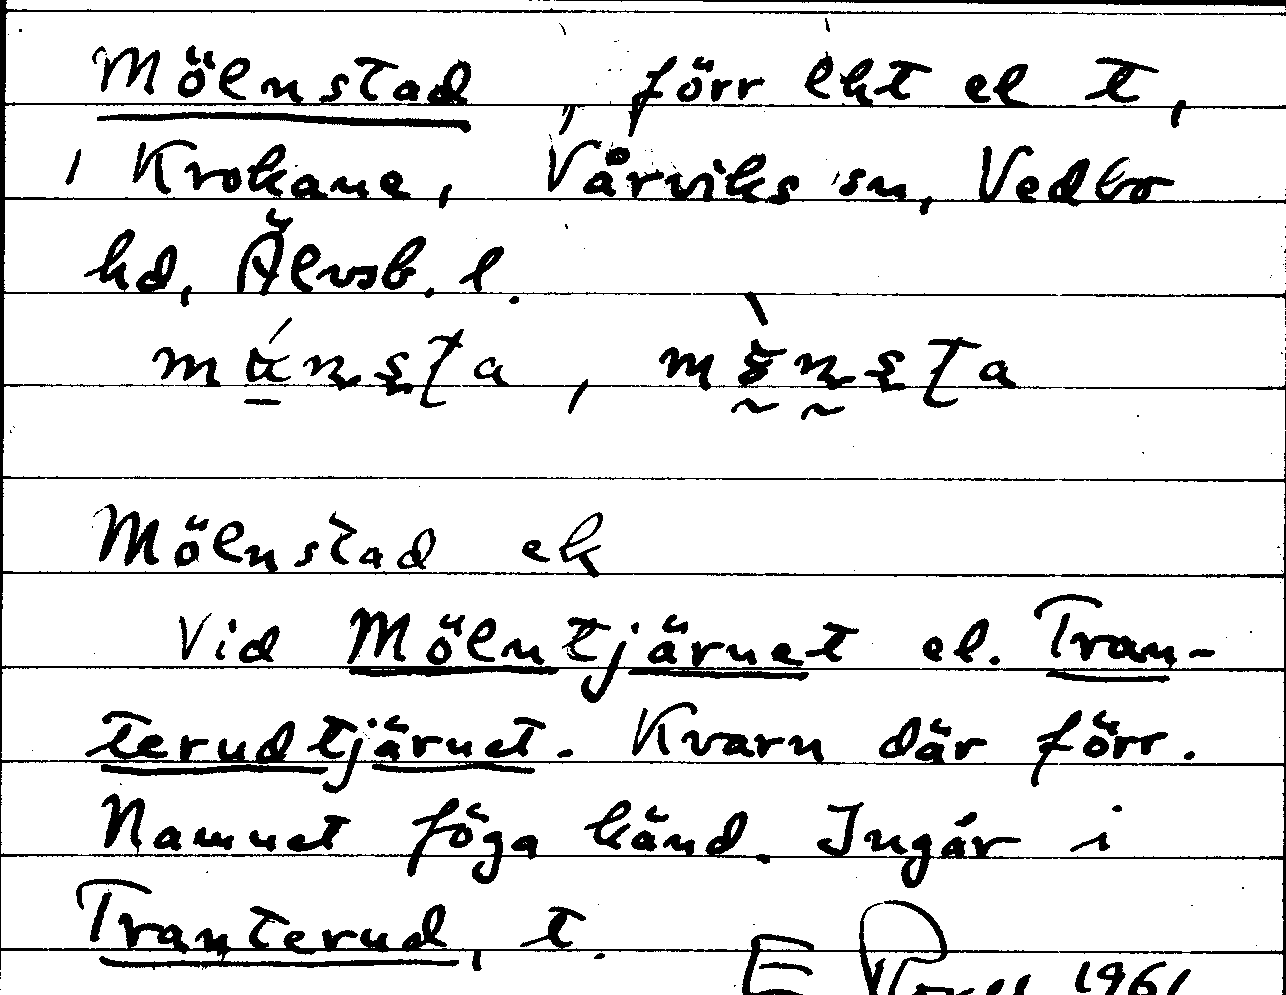 Mölnstad, förr lht el t,
i Krokane, Vårviks sn, Vedbo
hd, Älvsb. l.
Mölnstad ek
Vid Mölntjärnet el. Tran-
terudtjärnet. Kvarn där förr.
Namnet föga känd. Ingår i
Tranterud, t.
E 1961